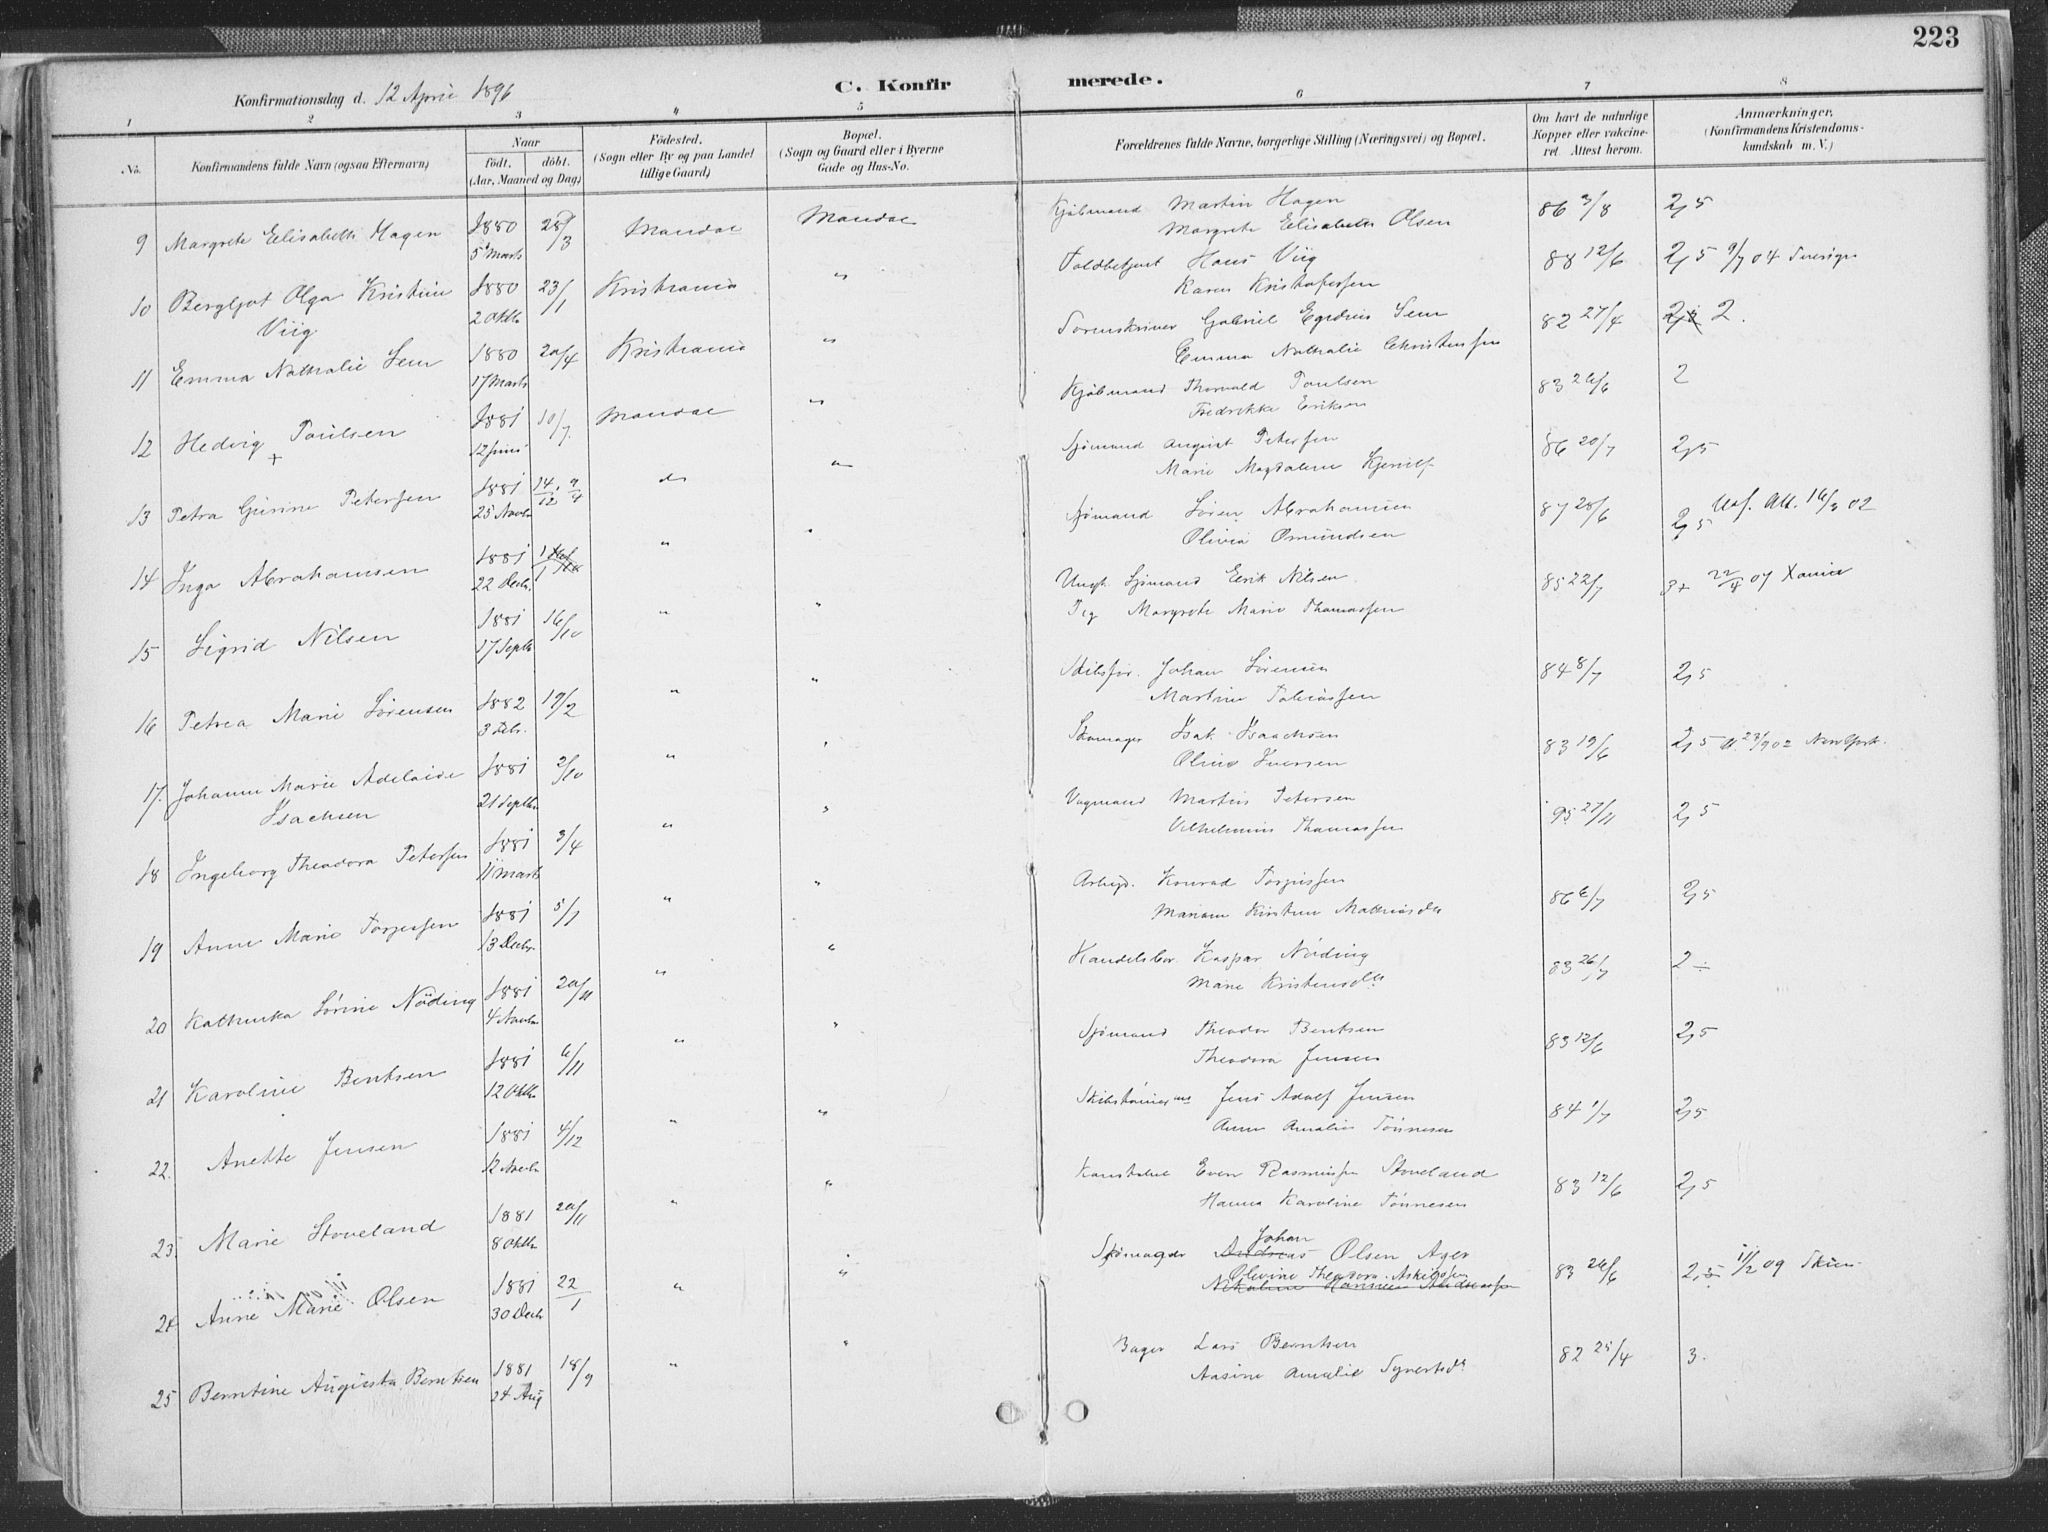 223
C. Konfirmerede.
Konfirmationsdag d. 12 April 1896
1 2 3 4 5 6 7 8
No.
Konfirmandens fulde Navn (ogsaa Efternavn)
Naar
födt. döbt.
(Aar, Maaned og Dag)
Födested.
(Sogn eller By og paa Landet
tillige Gaard)
Bopæl.
(Sogn og Gaard eller i Byerne
Gade og Hus-No.
Forældrenes fulde Navne, borgerlige Stilling (Næringsvei) og Bopæl.
Om havt de naturlige
Kopper eller vakcine-
ret. Attest herom.
Anmærkninger.
(Konfirmandens Kristendoms-
kundskab m.V.)
9 Margrete Elisabeth Hagen 1880 5 Marts 28/3 Mandal Mandal Kjöbmand Martin Hagen 86 3/8 2,5
Margrete Elisabeth Olsen
10 Bergljot Olga Kristine 1880 2 Oktb 23/1 Kristiania " Toldbetjent Hans Viig 88 12/6 2,5 9/7 04 Sverige
Viig Karen Kristofersen
11 Emma Nathalie Sem 1880 17 Marts 20/4 Kristiania " Sorenskriver Gabriel Egidius Sem 82 27/4 2.
Emma Nathalie Christensen
12 Hedvig Poulsen 1881 12 Juni 10/7 Mandal " Kjöbmand Thorvald Poulsen 83 26/6 2
+ Fredrikke Eriksen
13 Petra Gurine Petersen 1881 25 Novb 14/12 9/4 do " Sjømand August Petersen 86 20/7 2,5
Marie Magdalene
14 Inga Abrahamsen 1881 22 Decb. " " Sjømand Søren Abrahamsen 87 28/6 2,5 Utf. Att. 16/3 02
Olivia Omundsen
15 Sigrid Nilsen 1881 17 Septb 16/10 " " Ungk. Sjømand Eirik Nilsen 85 22/7 3+ 22/4 07 Xania
Pig Margrete Marie Thomassen
16 Petrea Marie Sørensen 1882 3 Febr. 19/2 " " Skibsfør. Johan Sørensen 84 8/7 2,5
Martine Tobiassen
17. Johanne Marie Adelaide 1881 21 Septbr 2/10 " " Skomager Isak Isaachsen 83 19/6 2,5 U. 23/9 02 New York.
Isachsen Oline Iversen
18 Ingeborg Theodora Petersen 1881 11 Marts 3/4 " " Vognmand Martin Petersen 95 27/11 2,5
Vilhelmine Thomassen
19 Anne Marie Torjussen 1881 13 Decbr. 5/1 " " Arbejd. Konrad Torjussen 86 6/7 2,5
Mariane Kirstine Mathiasdtr
20 Kathinka Sørine Nöding 1881 4 Novbr 20/11 " " Handelsbor. Kaspar Nöding 83 26/7 2 ÷
Marie Kristensdtr
21 Karoline Bentsen 1881 12 Oktb 6/11 " " Sjømand Theodor Bentsen 83 12/6 2,5
Theodora Jensen
22. Anette Jensen 1881 12 Novb 4/12 " " Skibstømmerm Jens Adolf Jensen 84 1/7 2,5
Anne Amalie Tönnesen
23. Marie Stoveland 1881 8 Oktb 20/11 " " Even Rasmussen Stoveland 83 12/6 2,5
Hanna Karoline Tönnesen
24 Anne Marie Olsen 1881 30 Decb 22/1 " " Johan
Andreas Olsen Ager 83 26/6 2,5 11/2 09 Skien
Olivine Theodora Askildsen
25 Berntine Augusta Berntsen 1881 24 Aug 18/9 " " Bager Lars Berntsen 82 25/4 3.
Aasine Amalie Syvertsdr